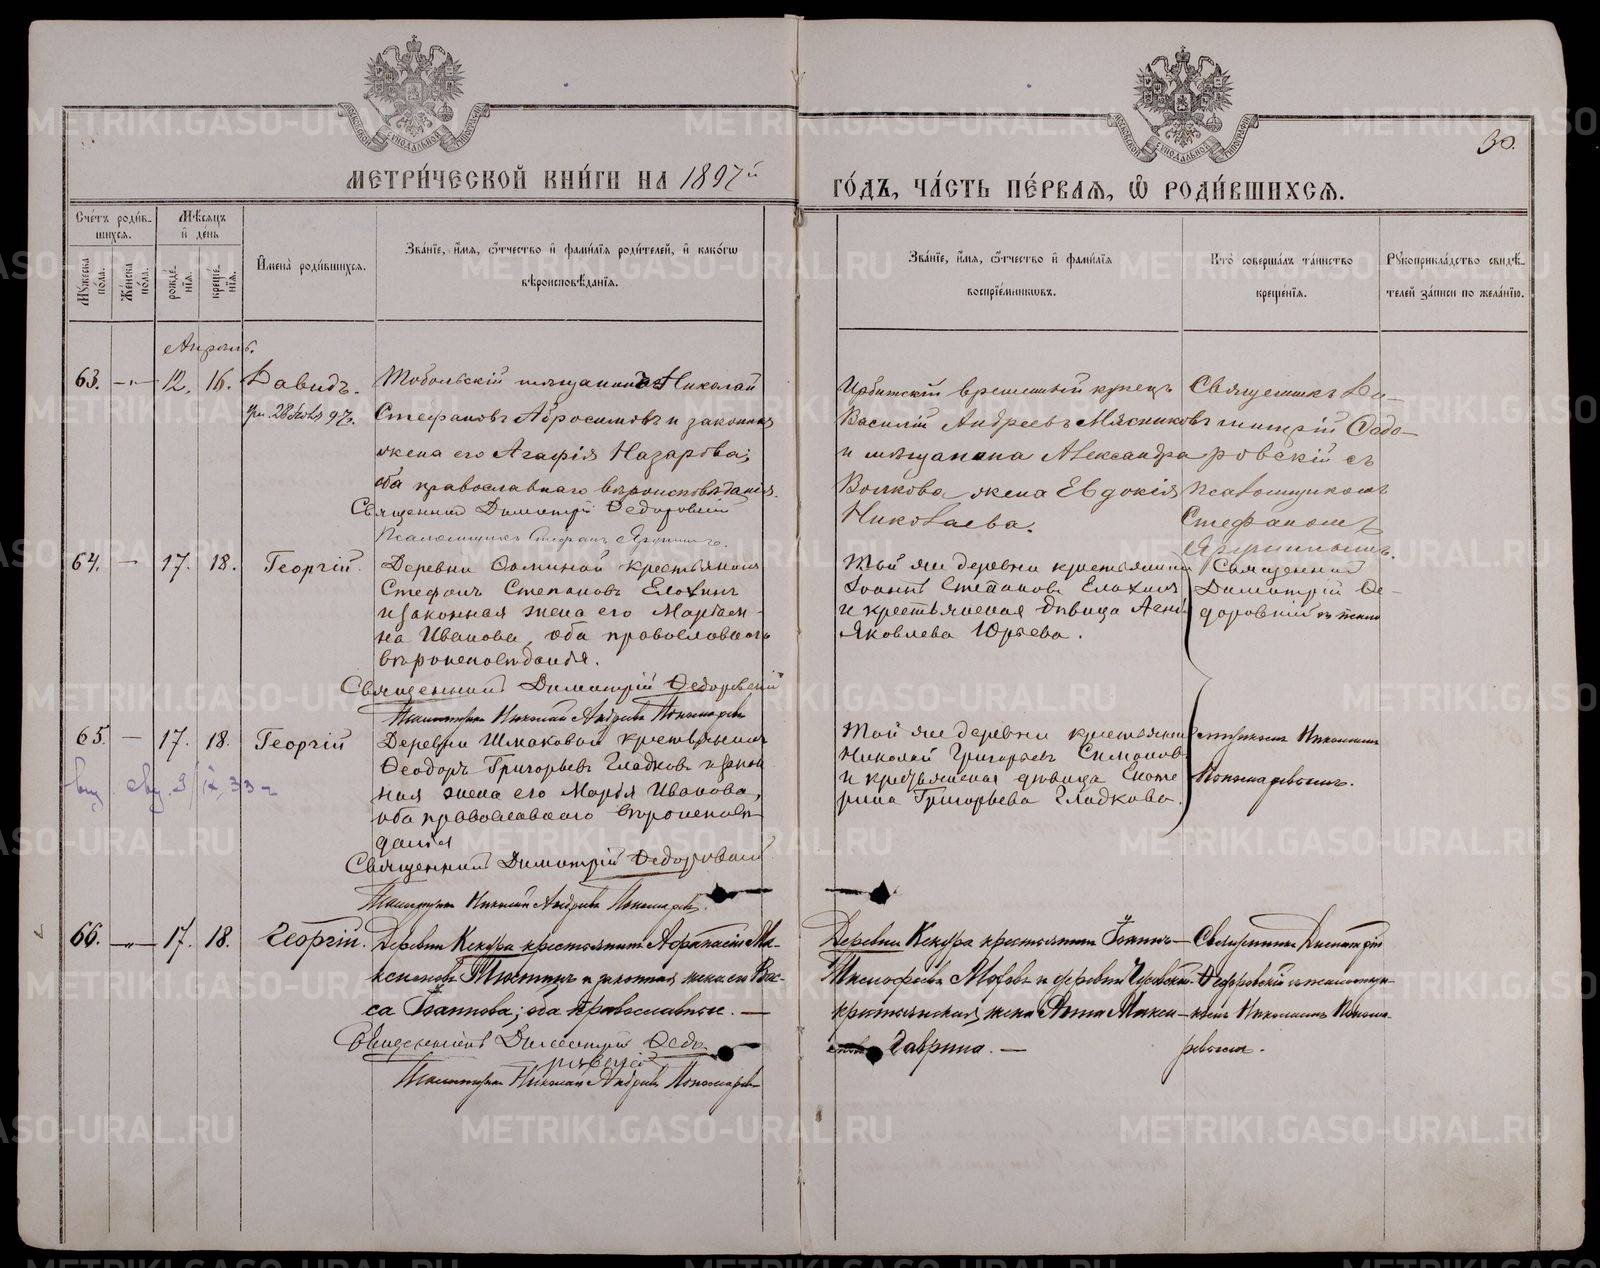 МЕТРИ́ЧЕСКОЙ КНИ́ГИ НА 1897й
ГО́ДЪ, ЧА́СТЬ ПЕ́РВАЯ, Ѡ РОДИ́ВШИХСЯ.
30.
Сче́тъ роди́в-
шихся.
Мѣ́сяцъ
и де́нь
Му́жеска по́ла.
Же́нска по́ла.
рожде́-
нія.
креще́-
нія.
Имена̀ роди́вшихся.
Зва́ніе, и́мя, ѻ́тчество и фами́лія роди́телей, и како́гѡ
вѣроисповѣ́данія.
Зва́ніе, и́мя, ѻ́тчество и фами́лія
воспріе́мникѡвъ.
Кто̀ соверша́лъ та́инство
креще́нія.
Рꙋкоприкла́дство свидѣ́-
телей за́писи по жела́нію.
Апрѣль.
63. — 12. 16. Давидъ.
Тобольскій мѣщанинъ Николай
Стефановъ Абросимовъ и законная
жена его Агафія Назарова;
оба православнаго вѣроисповѣданія.
Священникъ Димитрій Ѳедоровскій
Псаломщикъ Стефанъ
Ирбитскій временный купецъ
Василій Андреевъ Мясниковъ
и мѣщанина Александра
Волкова жена Евдокія
Николаева.
Священникъ Ди-
митрій Ѳедо-
ровскій съ
псаломщикомъ
Стефаномъ
64. — 17. 18. Георгій.
Деревни Ѳоминой крестьянинъ
Стефанъ Степановъ Елохинъ
и законная жена его Мартем-
на Иванова, оба православнаго
вѣроисповѣданія.
Священникъ Димитрій Ѳедоровскій
Псаломщикъ Николай Андреевъ Пономаревъ
Той же деревни крестьянинъ
Іоаннъ Степановъ Елохинъ
и крестьянская дѣвица
Яковлева Юрьева.
Священникъ
Димитрій Ѳе-
доровскій съ псало
65. — 17. 18. Георгій
Деревни Шмаковой крестьянинъ
Ѳеодоръ Григорьевъ Гладковъ и закон
ная жена его Марія Иванова,
оба православнаго вѣроисповѣ
данія
Священникъ Димитрій Ѳедоровскій
Псаломщикъ Николай Андреевъ Пономаревъ.
Той же деревни крестьянинъ
Николай Григорьевъ Симановъ
и крестьянская дѣвица Екате
рина Григорьева Гладкова.
мщикомъ Николаемъ
Пономаревымъ.
66. — 17. 18. Георгій.
Деревни Кекура крестьянинъ Афанасій Ма-
ксимовъ и законная жена его Вас-
са Іоаннова; оба православные. —
Священникъ Димитрій Ѳедо
ровскій
Псаломщикъ Николай Андреевъ Пономаревъ
Деревни Кекура крестьянинъ Іоаннъ —
и деревни
крестьянская жена Анна Макси —
Гаврина. —
Священникъ Димитрій
Ѳедоровскій съ псаломщи-
комъ Николаемъ Понома-
ревымъ.